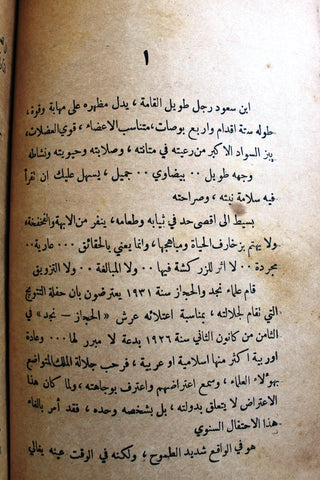 ١
ابن سعود رجل طويل القامة ، يدل مظهره على مهابة وقوة ،
طوله ستة اقدام واربع بوصات ، متناسب الاعضاء ، قوي العضلات ،
يبز السواد الاكبر من رعيته في متانته ، وصلابته وحيويته ونشاطه
وجهه طويل .. بيضاوي .. جميل ، يسهل عليك ان تقرأ
فيه سلامة نيته ، وصراحته
بسيط الى اقصى حد في ثيابه وطعامه ، ينفر من الابهة والفخفخة ،
ولا يهتم بزخارف الحياة ومباهجها ، وانما يعني بالحقائق ... عارية ..
مجردة .. لا اثر للزركشة فيها .. ولا المبالغة .. ولا التزويق
قام علماء نجد والحجاز سنة ١٩٣١ يعترضون بان حفلة التتويج
التي تقام لجلالته ، بمناسبة اعتلائه عرش « الحجاز – نجد » في
الثامن من كانون الثاني سنة ١٩٢٦ بدعة لا مبرر لها ... وعادة
اوربية أكثر منها اسلامية او عربية ، فرحب جلالة الملك المتواضع
بهؤلاء العلماء ، وسمع اعتراضهم واعترف بوجاهته ، ولما كان هذا
الاعتراض لا يتعلق بدولته ، بل بشخصه وحده ، فقد أمر بالغاء
هذا الاحتفال السنوي
هو في الواقع شديد الطموح ، ولكنه في الوقت عينه يغالي